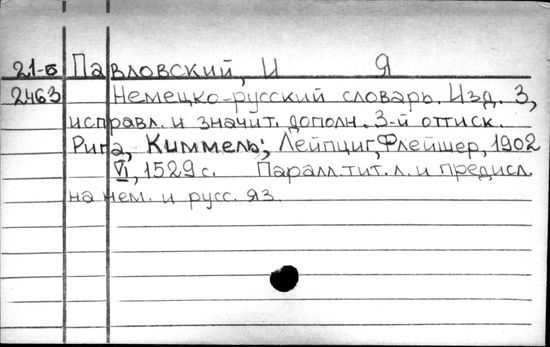 21-б Павловский, И Я
2463 Немецко-русский словарь. Изд. 3,
исправл. и значит. дополн. 3-й оттиск.
Рига, Киммель; Лейпциг, Флейшер, 1902
VI, 1529 с. Паралл. тит. л. и предисл.
на нем. и русс. яз.